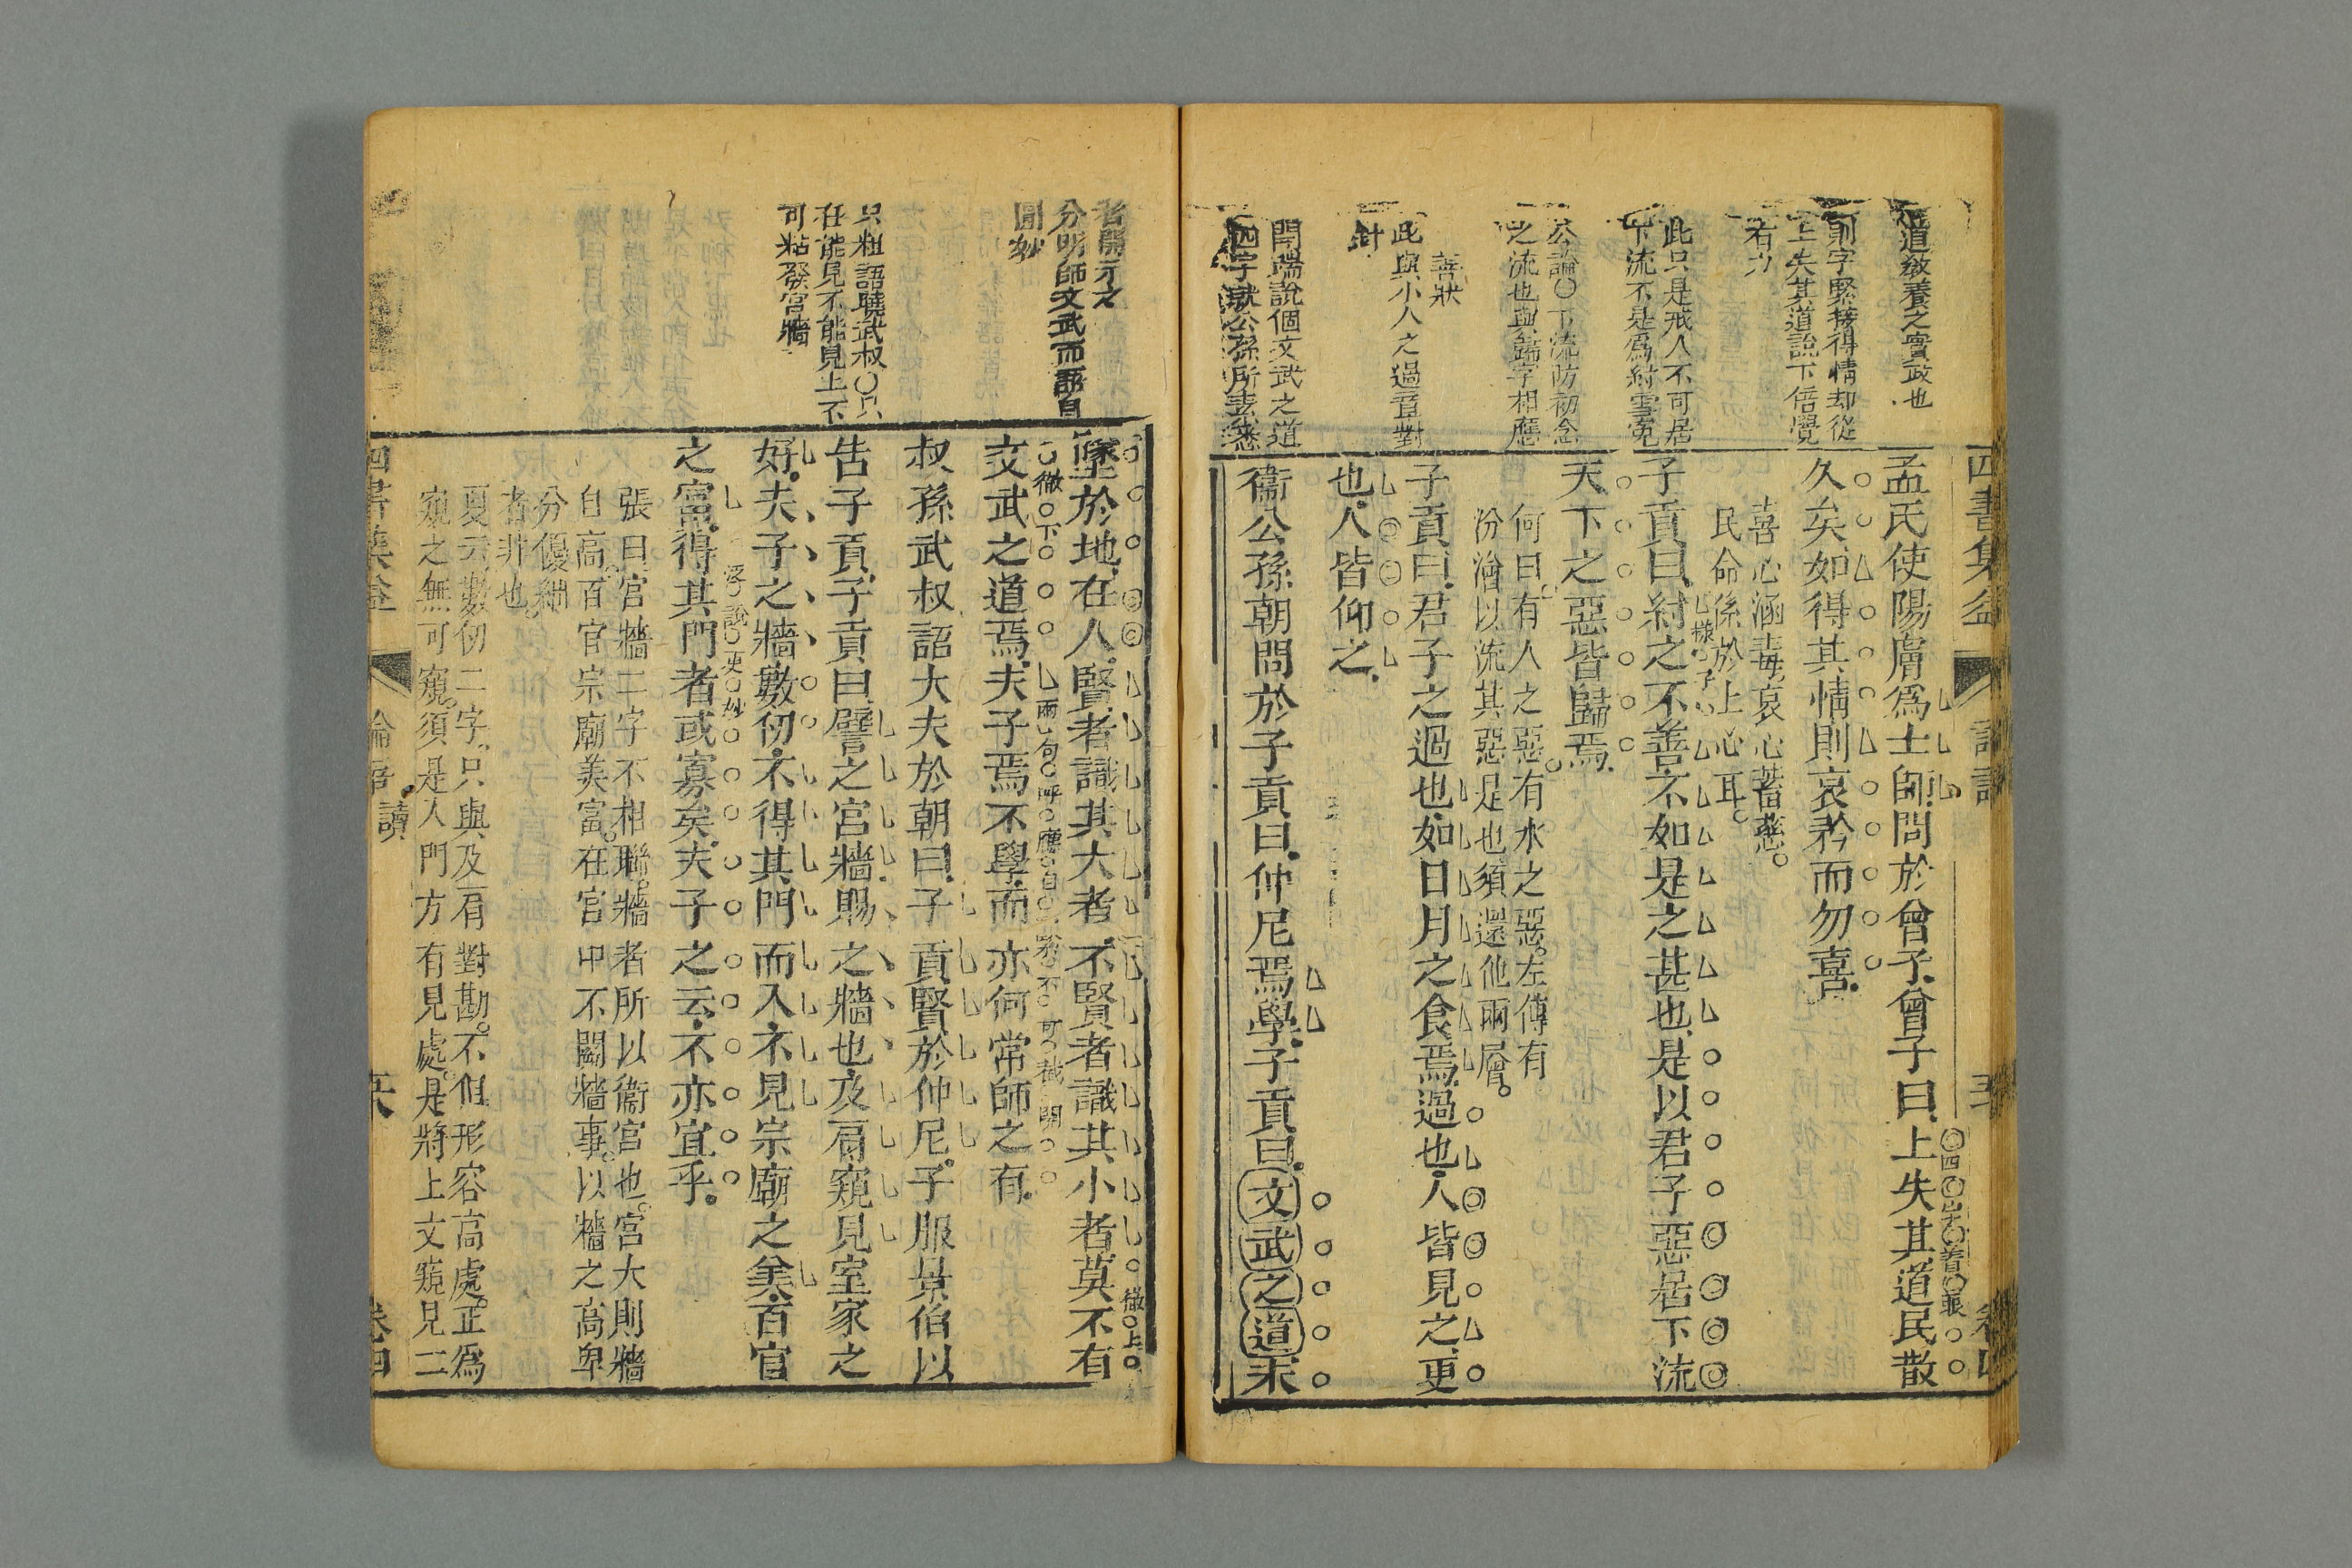 四書集益
卷四
道敎養之實政也
則字緊接得情却從
上失其道說下倍覺
有力
此只是戒人不可居
下流不是爲紂雪寃
公論〇下流防初念
之流也與歸字相應
善狀
此與小人之過章對
針
開端說個文武之道
四字就公孫所
孟氏使陽膚爲士師問於曾子曾子曰上失其道民散
久矣如得其情則哀矜而勿喜
喜心涵毒哀心蓄慈
民命係於上心耳
子貢曰紂之不善不如是之甚也是以君子惡居下流
天下之惡皆歸焉
何曰有人之惡有水之惡左傳有
汾澮以流其惡是也須還他兩層
子貢曰君子之過也如日月之食焉過也人皆見之更
也人皆仰之
衞公孫朝問於子貢曰仲尼焉學子貢曰文武之道未
者開示之
分明師文武而語自
圓妙
只粗語曉武叔〇只
在能見不能見上不
可粘發宮牆
徹上
墜於地在人賢者識其大者不賢者識其小者莫不有
徹下 兩句呼應自 不可截開
文武之道焉夫子焉不學而亦何常師之有
叔孫武叔語大夫於朝曰子貢賢於仲尼子服景伯以
告子貢子貢曰譬之宮牆賜之牆也及肩窺見室家之
好夫子之牆數仞不得其門而入不見宗廟之美百官
說更妙
之富得其門者或寡矣夫子之云不亦宜乎
張曰宮牆二字不相聯牆者所以衞宮也宮大則牆
自高百官宗廟美富在宮中不關牆事以牆之高卑
分優絀
者非也
夏云數仞二字只與及肩對勘不但形容高處正爲
窺之無可窺須是入門方有見處是將上文窺見二
四書集益
論語
讀
卷四